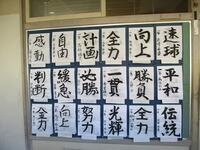 速球
向上
全力
計画
自由
感動
平和
勝負
一貫
必勝
緩急
判断
伝統
全力
光輝
努力
向上
全力